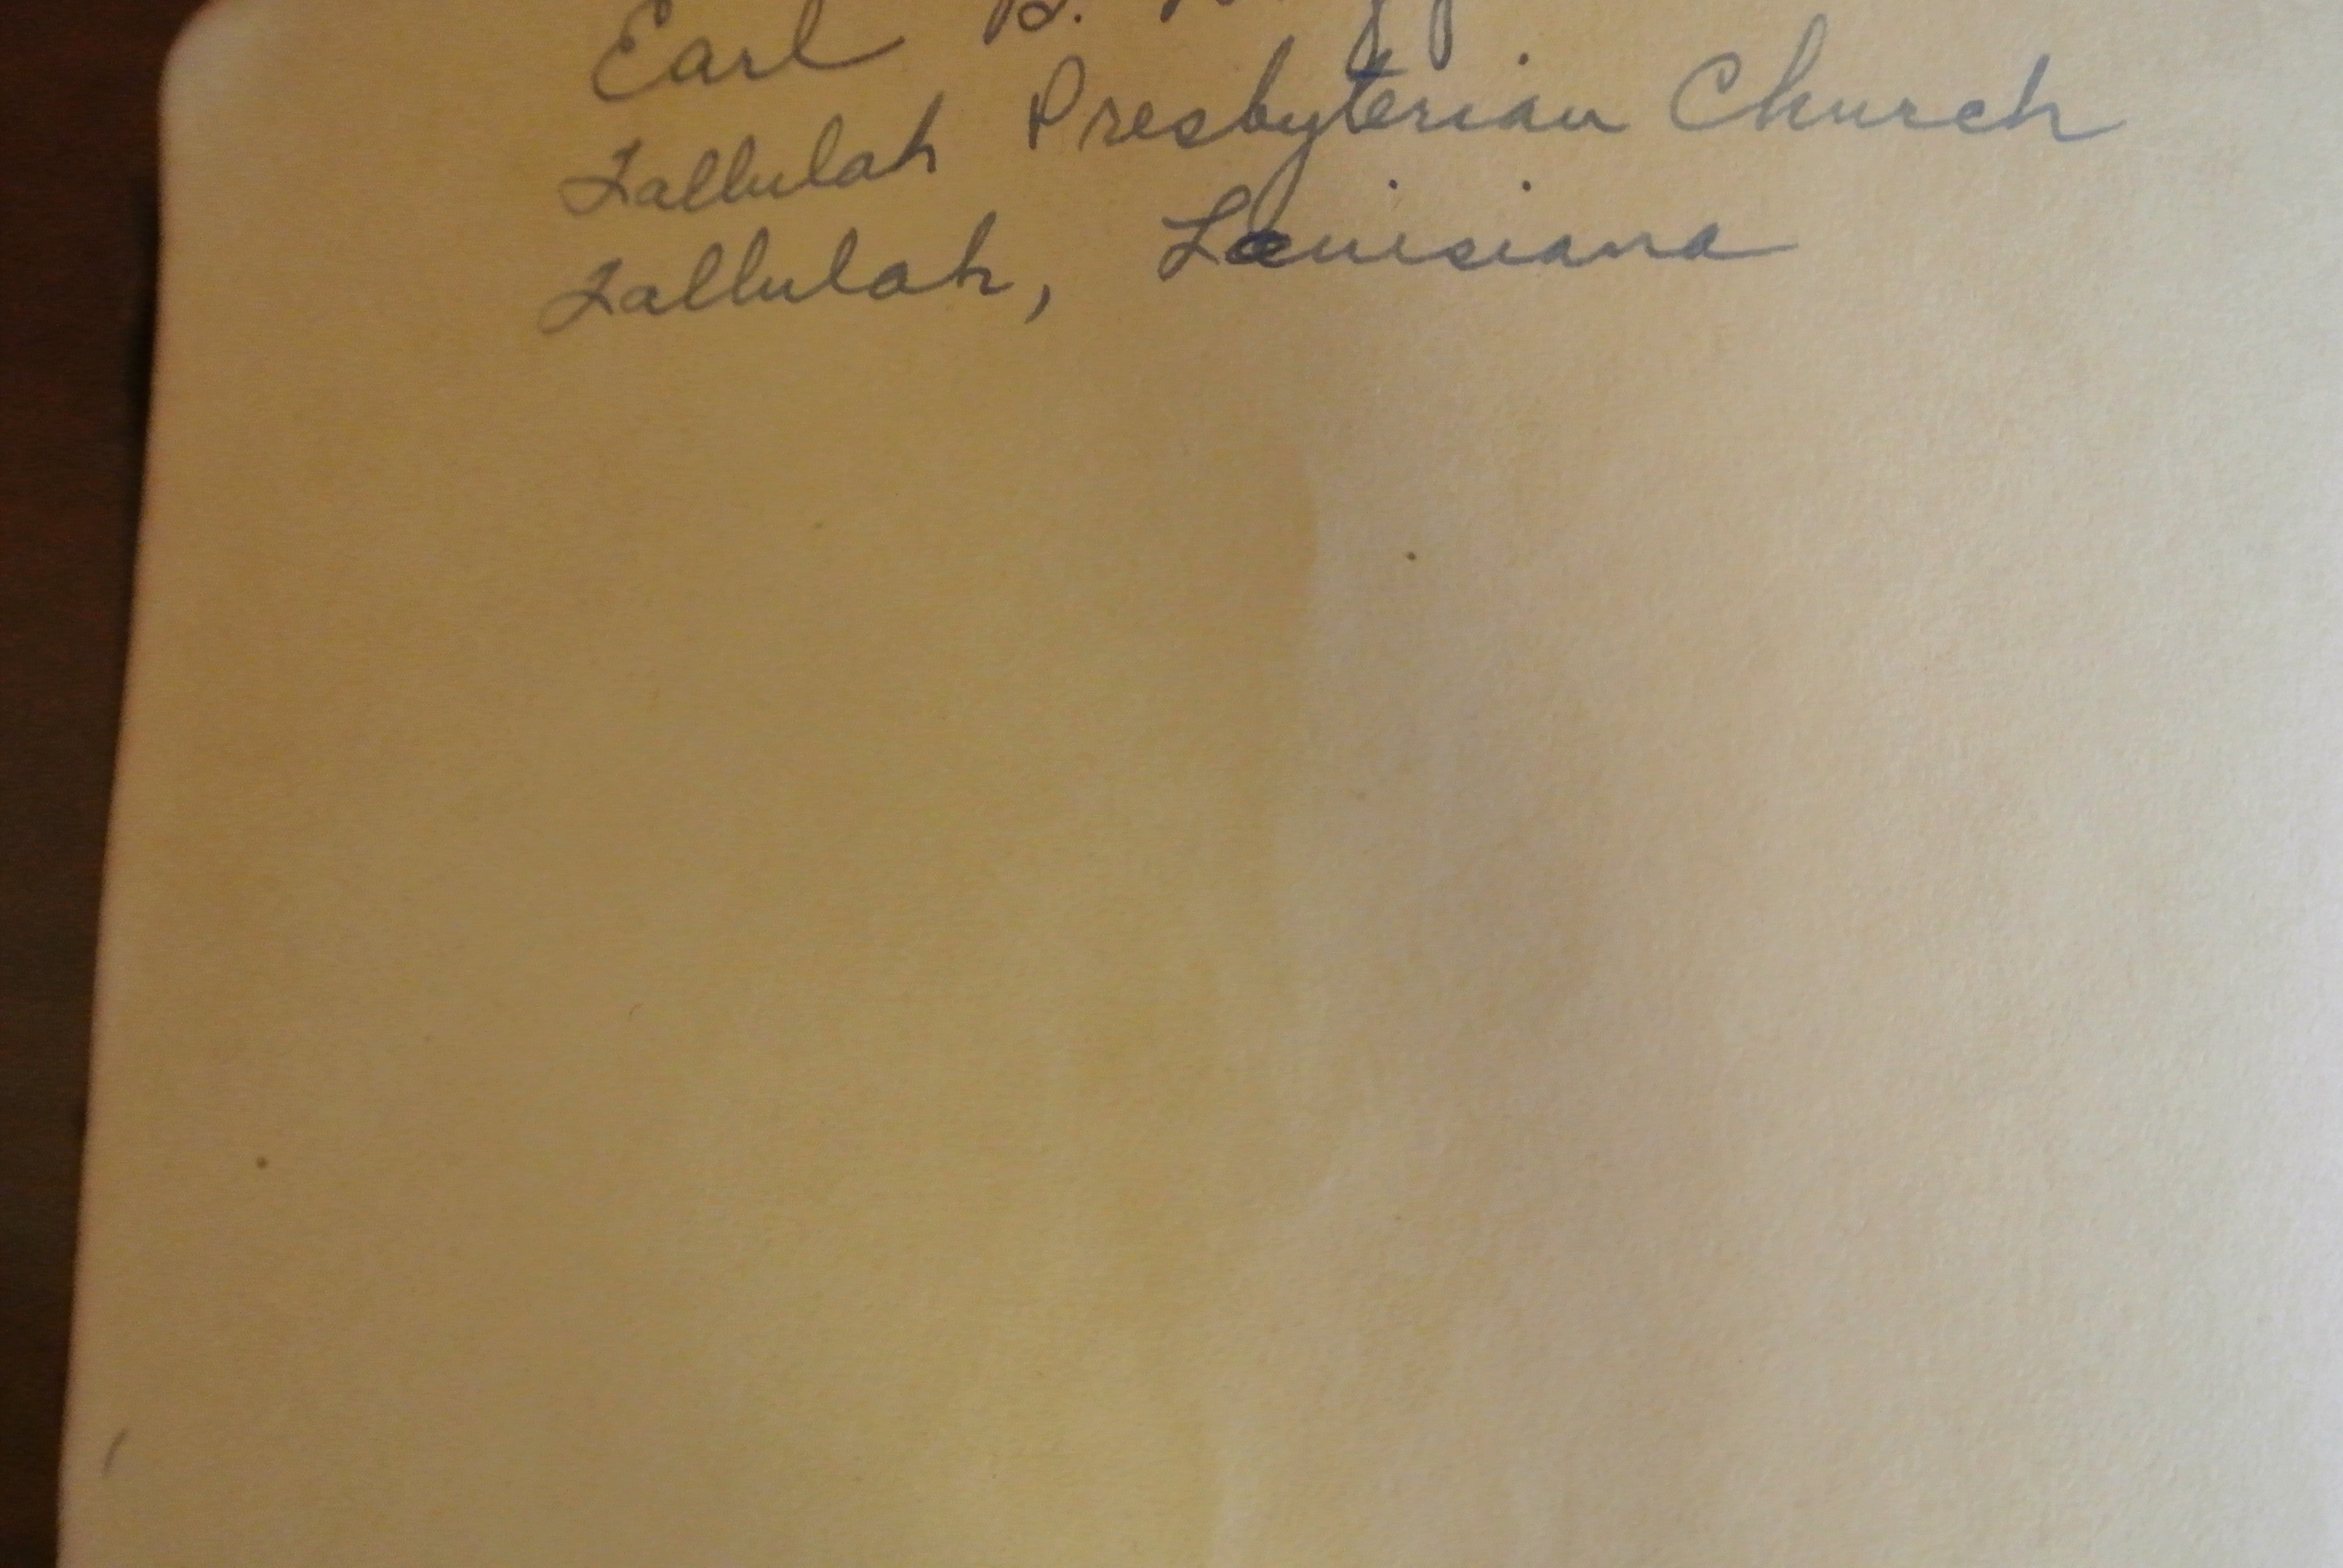 Earl B.
Tallulah Presbyterian Church
Tallulah, Louisiana